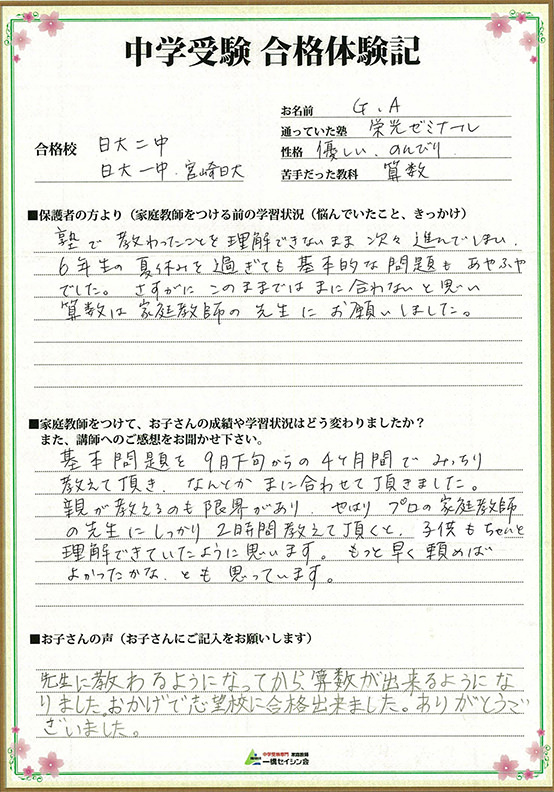 中学受験 合格体験記
お名前 G.A
通っていた塾 栄光ゼミナール
合格校 日大二中
性格 優しい、のんびり
日大一中、宮崎日大
苦手だった教科 算数
■保護者の方より(家庭教師をつける前の学習状況(悩んでいたこと、きっかけ)
塾で教わったことを理解できないまま次々進んでしまい、
6年生の夏休みを過ぎても基本的な問題もあやふや
でした。さすがにこのままではまに合わないと思い
算数は家庭教師の先生にお願いしました。
■家庭教師をつけて、お子さんの成績や学習状況はどう変わりましたか?
また、講師へのご感想をお聞かせ下さい。
基本問題を9月下旬からの4ヶ月間でみっちり
教えて頂き、なんとかまに合わせて頂きました。
親が教えるのも限界があり、やはりプロの家庭教師
の先生にしっかり2時間教えて頂くと、子供もちゃんと
理解できていたように思います。もっと早く頼めば
よかったかな、とも思っています。
■お子さんの声(お子さんにご記入をお願いします)
先生に教わるようになってから、算数が出来るようにな
りました。おかげで志望校に合格出来ました。ありがとうご
ざいました。
中学受験専門 家庭教師
一橋セイシン会